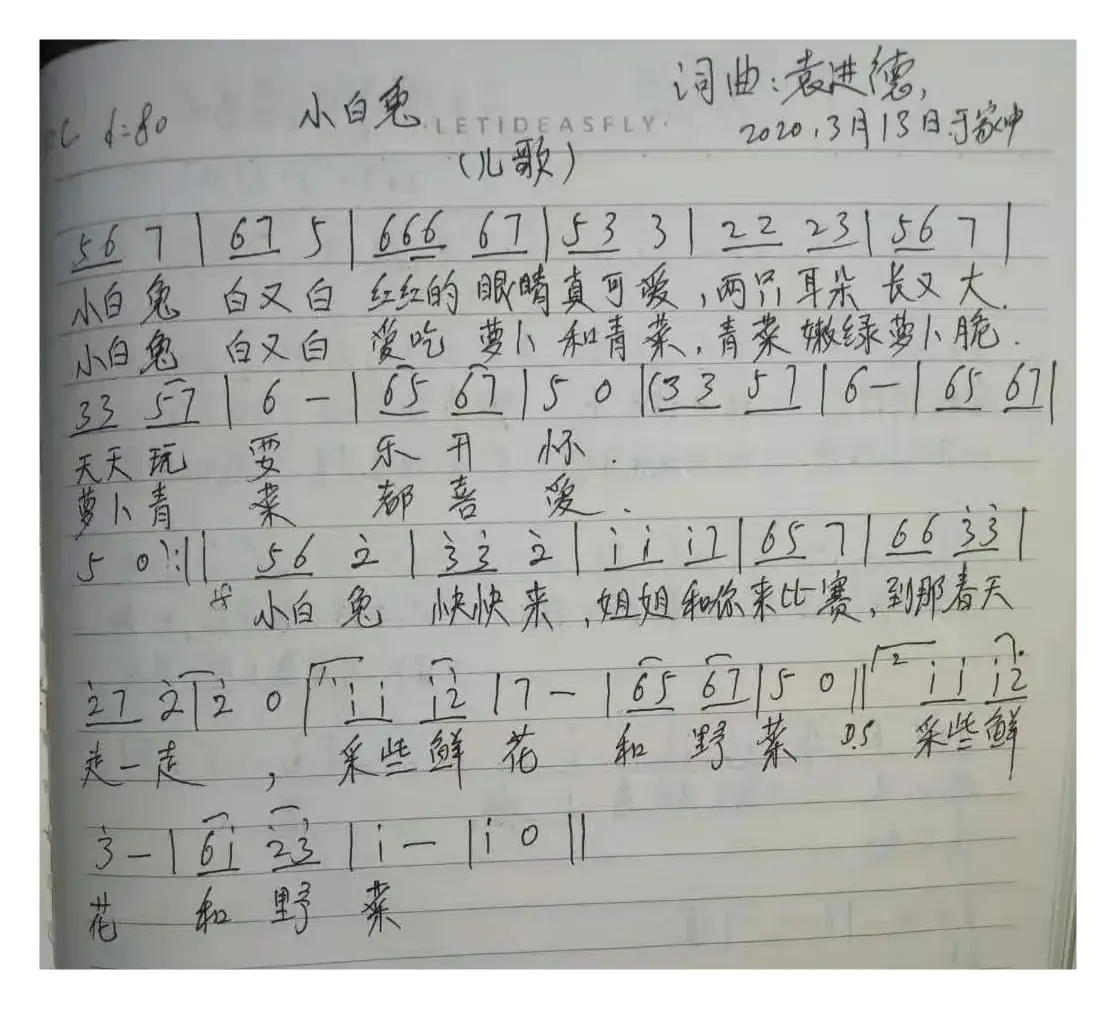 词曲:袁进德,
=C ♩=80 小白兔 ·LETIDEASFLY· 2020.3月13日.于家中
(儿歌)
56 7 | 67 5 | 666 67 | 53 3 | 22 23 | 56 7 |
小白兔 白又白 红红的 眼睛真可爱,两只耳朵 长又大.
小白兔 白又白 爱吃 萝卜 和青菜,青菜嫩绿萝卜脆.
33 57 | 6 - | 65 67 | 5 0 | (33 57 | 6 - | 65 67 |
天天玩 耍 乐开怀.
萝卜青 菜 都喜爱.
5 0):|| 56 2̇ | 3̇3̇ 2̇ | i i i7 | 65 7 | 66 3̇3̇ |
小白兔 快快来,姐姐和你来比赛,到那春天
2̇7 2̇ | 2̇ 0 | 1. i i i2̇ | 7 - | 65 67 | 5 0 || 2 i i i2̇
走一走 , 采些鲜 花 和 野 菜 D.S 采些鲜
3̇ - | 6i 2̇3̇ | i - | i 0 ||
花 和 野 菜